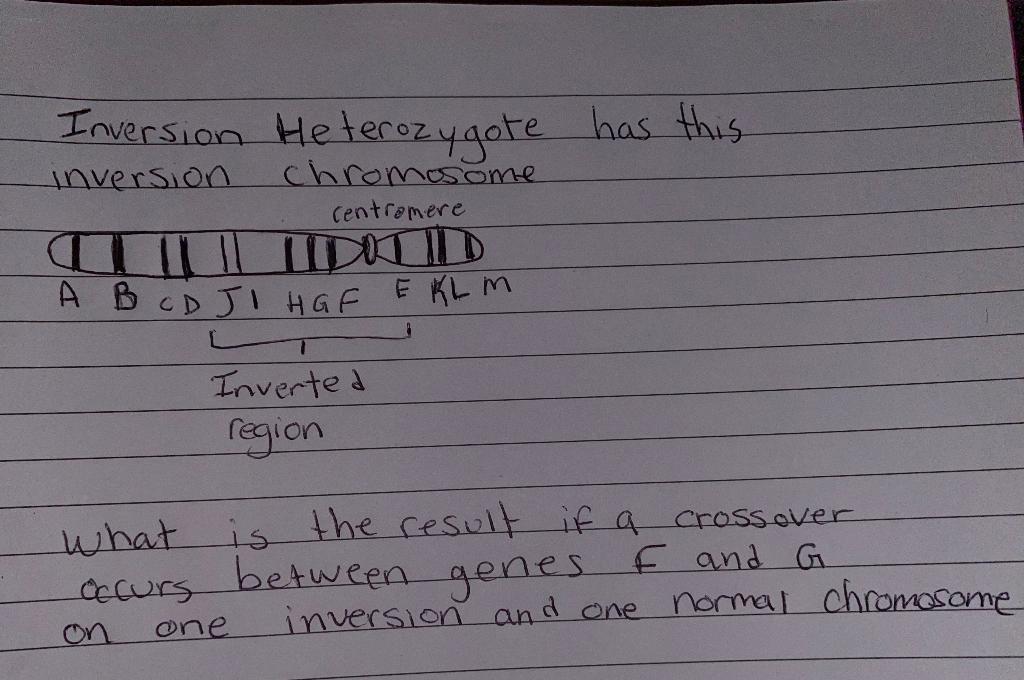 Inversion Heterozygote has this
inversion chromosome
centromere
A B C D J I H G F E K L M
Inverted
region
What is the result if a crossover
occurs between genes F and G
on one inversion and one normal chromosome